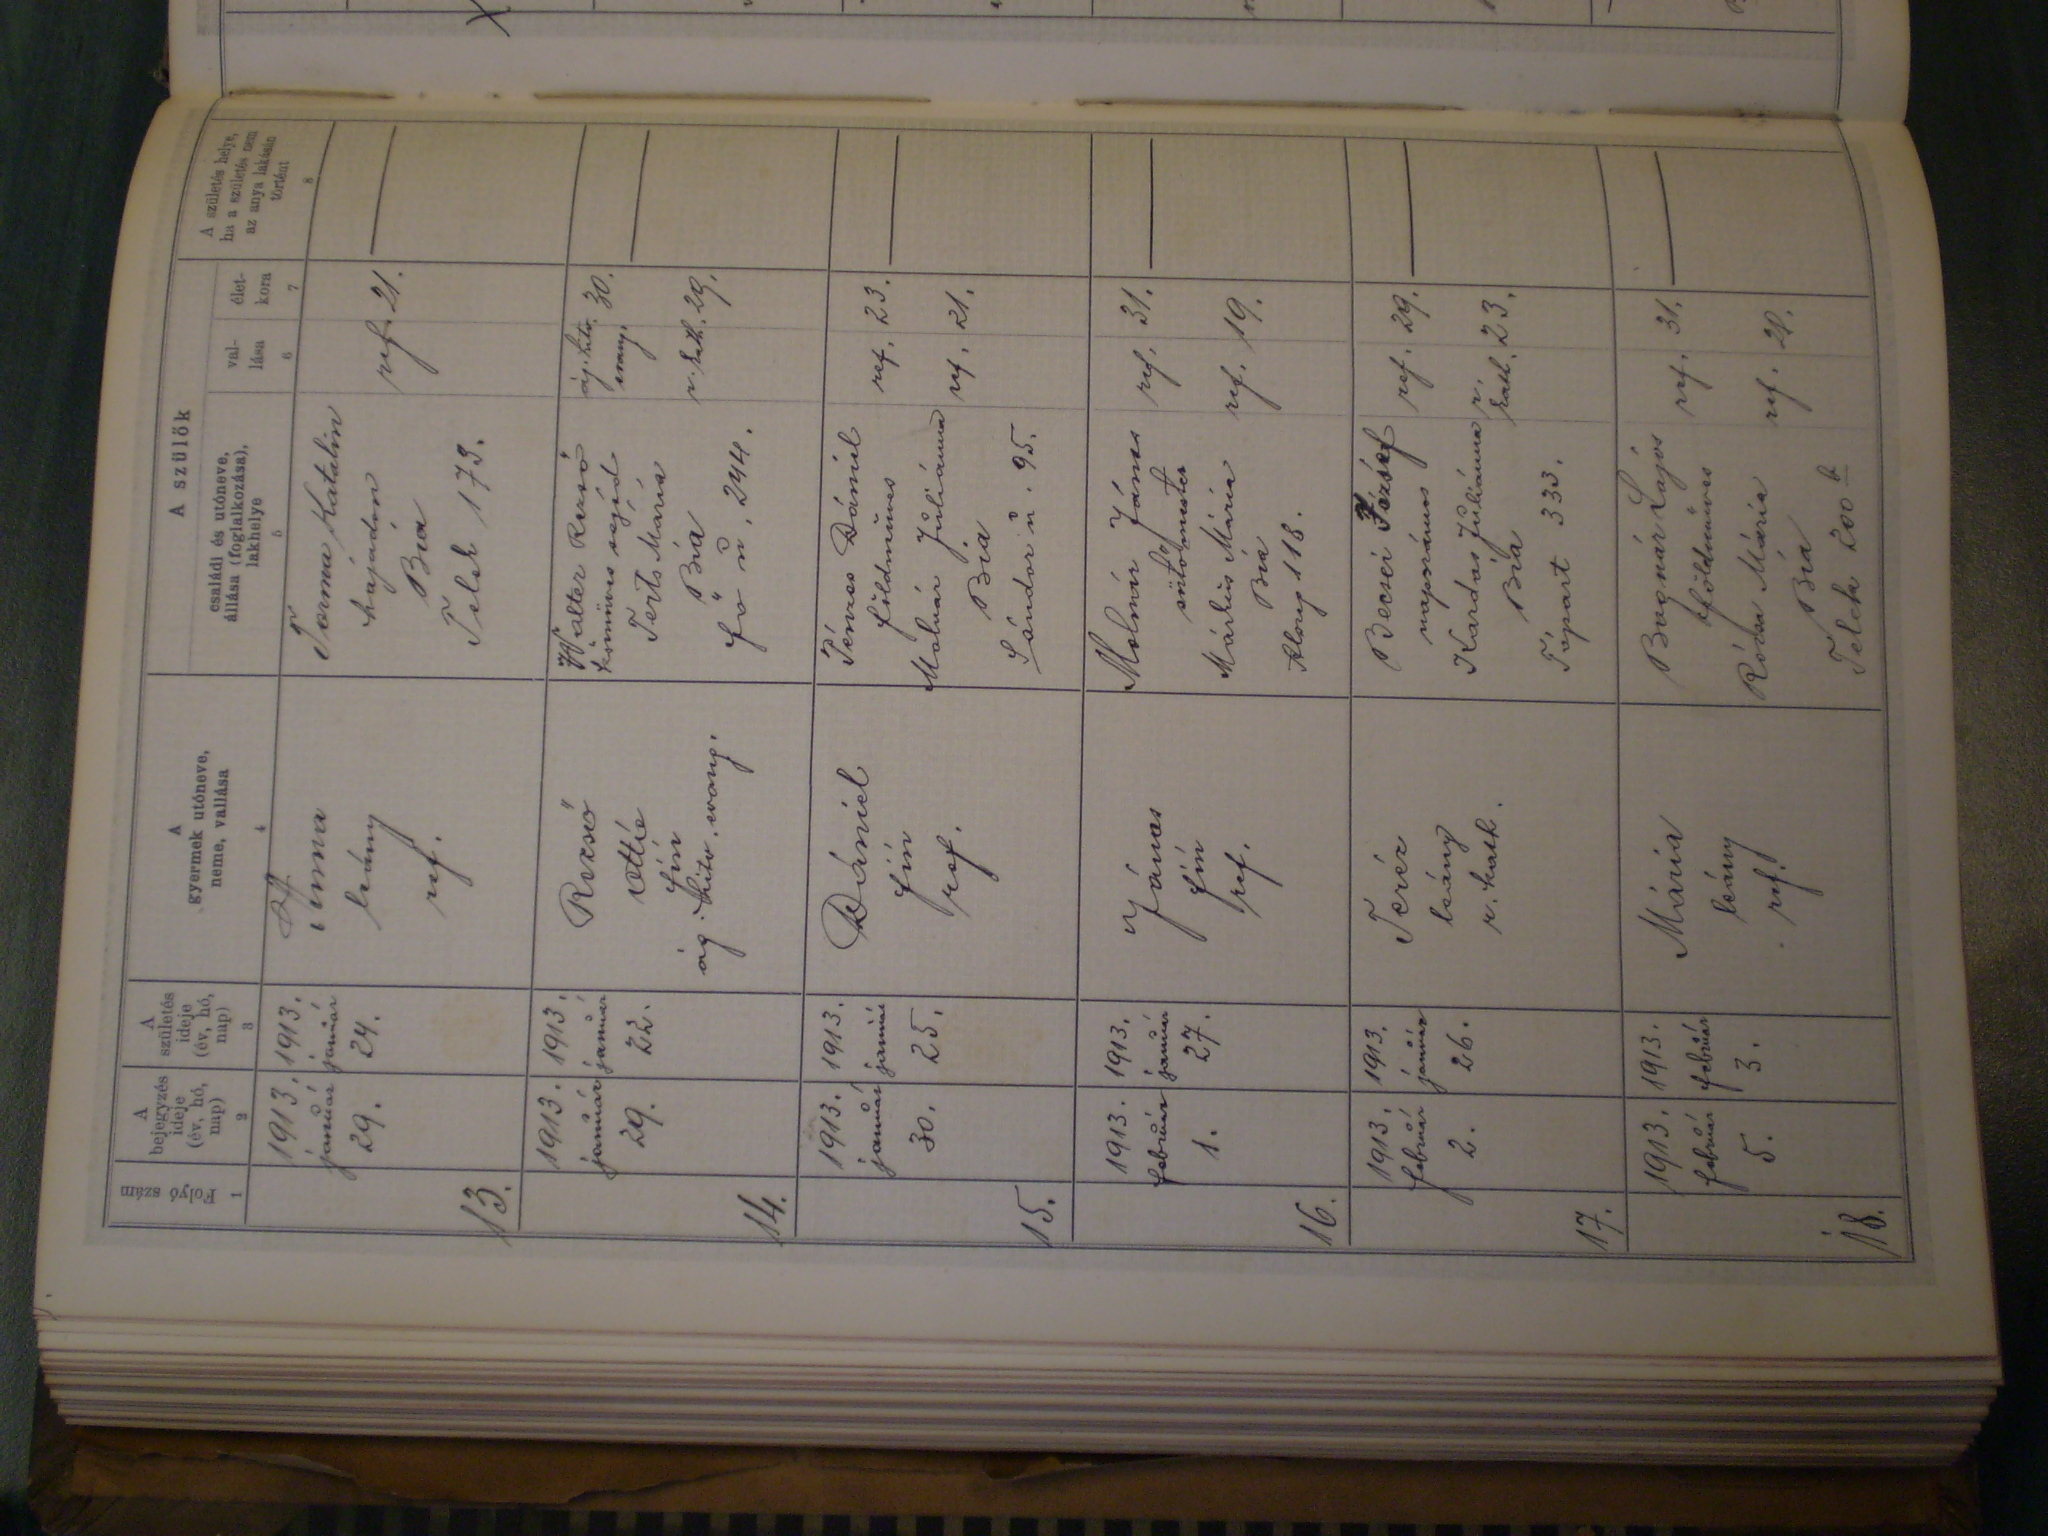 A szülők
Folyó szám
A
bejegyzés
ideje
(év, hó,
nap)
A
születés
ideje
(év, hó,
nap)
A
gyermek utóneve,
neme, vallása
családi és utóneve,
állása (foglalkozása),
lakhelye
val-
lása
élet-
kora
A születés helye,
ha a születés nem
az anya lakásán
történt
1
2
3
4
5
6
7
8
13.
1913.
január
29.
1913.
január
24.
Anna
leány
ref.
Torma Katalin
hajadon
Bia
Telek 173.
ref. 21.
14.
1913.
január
29.
1913.
január
22.
Rezső
Ottó
fiú
ág. hitv. evang.
Walter Rezső
kőműves segéd
Terts Mária
Bia
Fő u. 244.
ág. hitv. 30.
evang.
r. kath. 29.
15.
1913.
január
30.
1913.
január
25.
Dániel
fiú
ref.
Pénzes Dániel
földműves
Molnár Juliánna
Bia
Sándor u. 95.
ref. 23.
ref. 21.
16.
1913.
február
1.
1913.
január
27.
János
fiú
ref.
Molnár János
sütőmester
Márkus Mária
Bia
118.
ref. 31.
ref. 19.
17.
1913.
február
2.
1913.
január
26.
Teréz
leány
r. kath.
Becsei József
napszámos
Kardos Juliánna
Bia
Tópart 333.
ref. 29.
r.
kath. 23.
18.
1913.
február
5.
1913.
február
3.
Mária
leány
ref.
Bognár Lajos
földműves
Rózsa Mária
Bia
Telek 200 b
ref. 31.
ref.